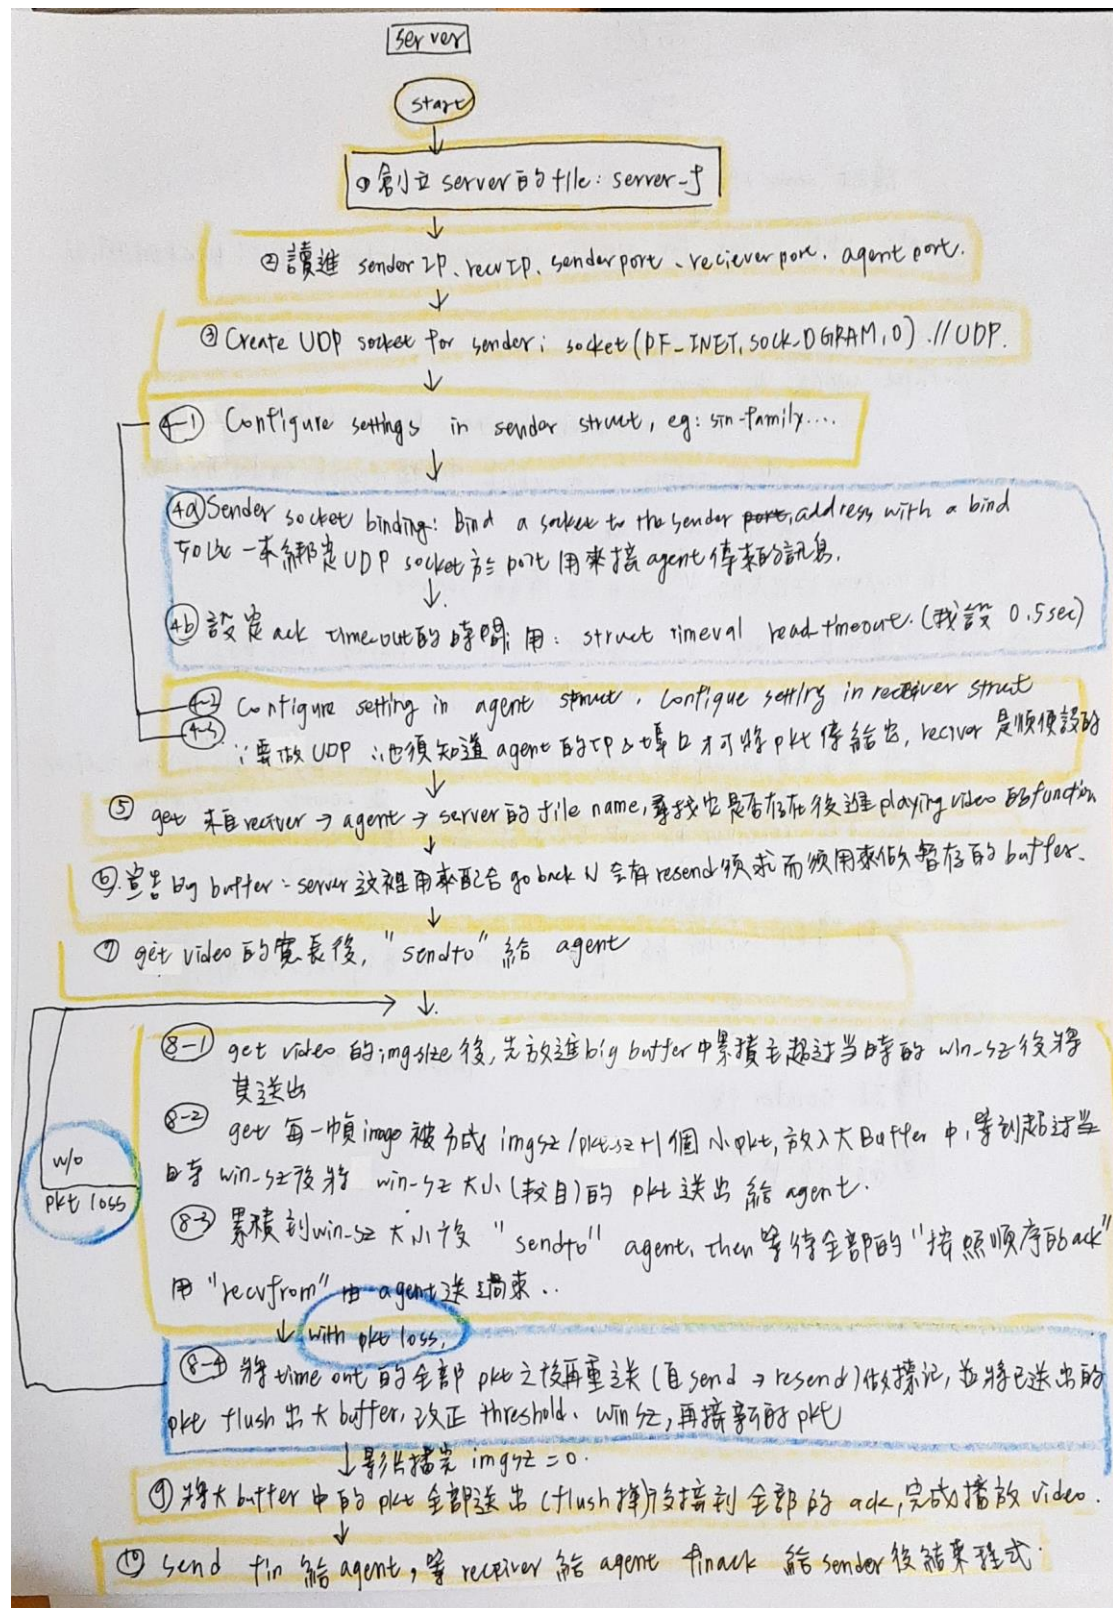 server
start
① 創立 server 的 file: server_f
② 讀進 sender IP、recv IP、sender port、reciever port、agent port.
③ Create UDP socket for sender; socket(PF_INET, SOCK_DGRAM, 0) .//UDP.
4-1 Configure settings in sender struct, eg: sin-family....
4a Sender socket binding: Bind a socket to the sender port, address with a bind
如此一來綁定 UDP socket 於 port 用來接 agent 傳來的訊息.
4b 設定 ack timeout 的時間; 用: struct timeval read_tmeout. (我設 0.5sec)
4-2 Configure setting in agent struct, Configue setting in receiver struct
4-3 ∵要做 UDP ∴也須知道 agent 的 IP & 埠口才可將 pkt 傳給它, reciver 是順便設的
⑤ get 來自 reciver → agent → server 的 file name, 尋找它是否存在後進 playing video 的 function
⑥ 宣告 big buffer: server 這裡用來配合 go back N 会有 resend 須求而須用來做暫存的 buffer.
⑦ get video 的寬長後, "sendto" 給 agent
8-1 get video 的 imgsize 後, 先放進 big buffer 中累積毛超过当時的 win_sz 後將
其送出
8-2 get 每一幀 image 被分成 imgsz/pkt_sz+1 個小 pkt, 放入大 Buffer 中, 等到超过当
時 win_sz 後將 win_sz 大小(數目)的 pkt 送出給 agent.
w/o
pkt loss
8-3 累積到 win_sz 大小後 "sendto" agent, then 等待全部的 "按照順序的 ack"
用 "recvfrom" 由 agent 送過來..
with pkt loss,
8-4 將 time out 的全部 pkt 之後再重送 (自 send → resend) 做標记, 並將已送出的
pkt flush 出大 buffer, 改正 threshold、win sz, 再接新的 pkt
影片播完 imgsz = 0.
⑨ 將大 buffer 中的 pkt 全部送出 (flush 掉)後接到全部的 ack, 完成播放 video.
⑩ send fin 給 agent, 等 receiver 給 agent finack 給 sender 後結束程式.